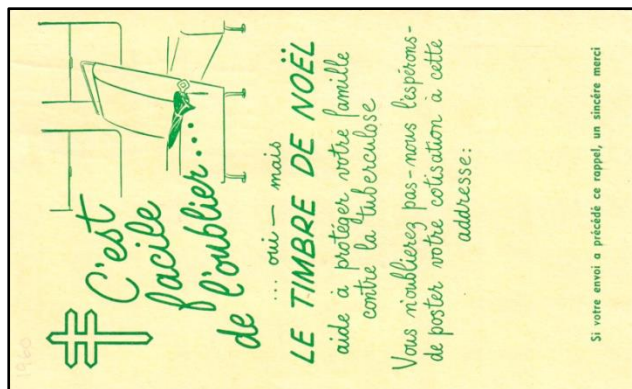 1960
C'est
facile
de l'oublier...
... oui — mais
LE TIMBRE DE NOËL
aide à protéger votre famille
contre la tuberculose
Vous n'oublierez pas-nous l'espérons-
de poster votre cotisation à cette
addresse:
Si votre envoi a précédé ce rappel, un sincére merci